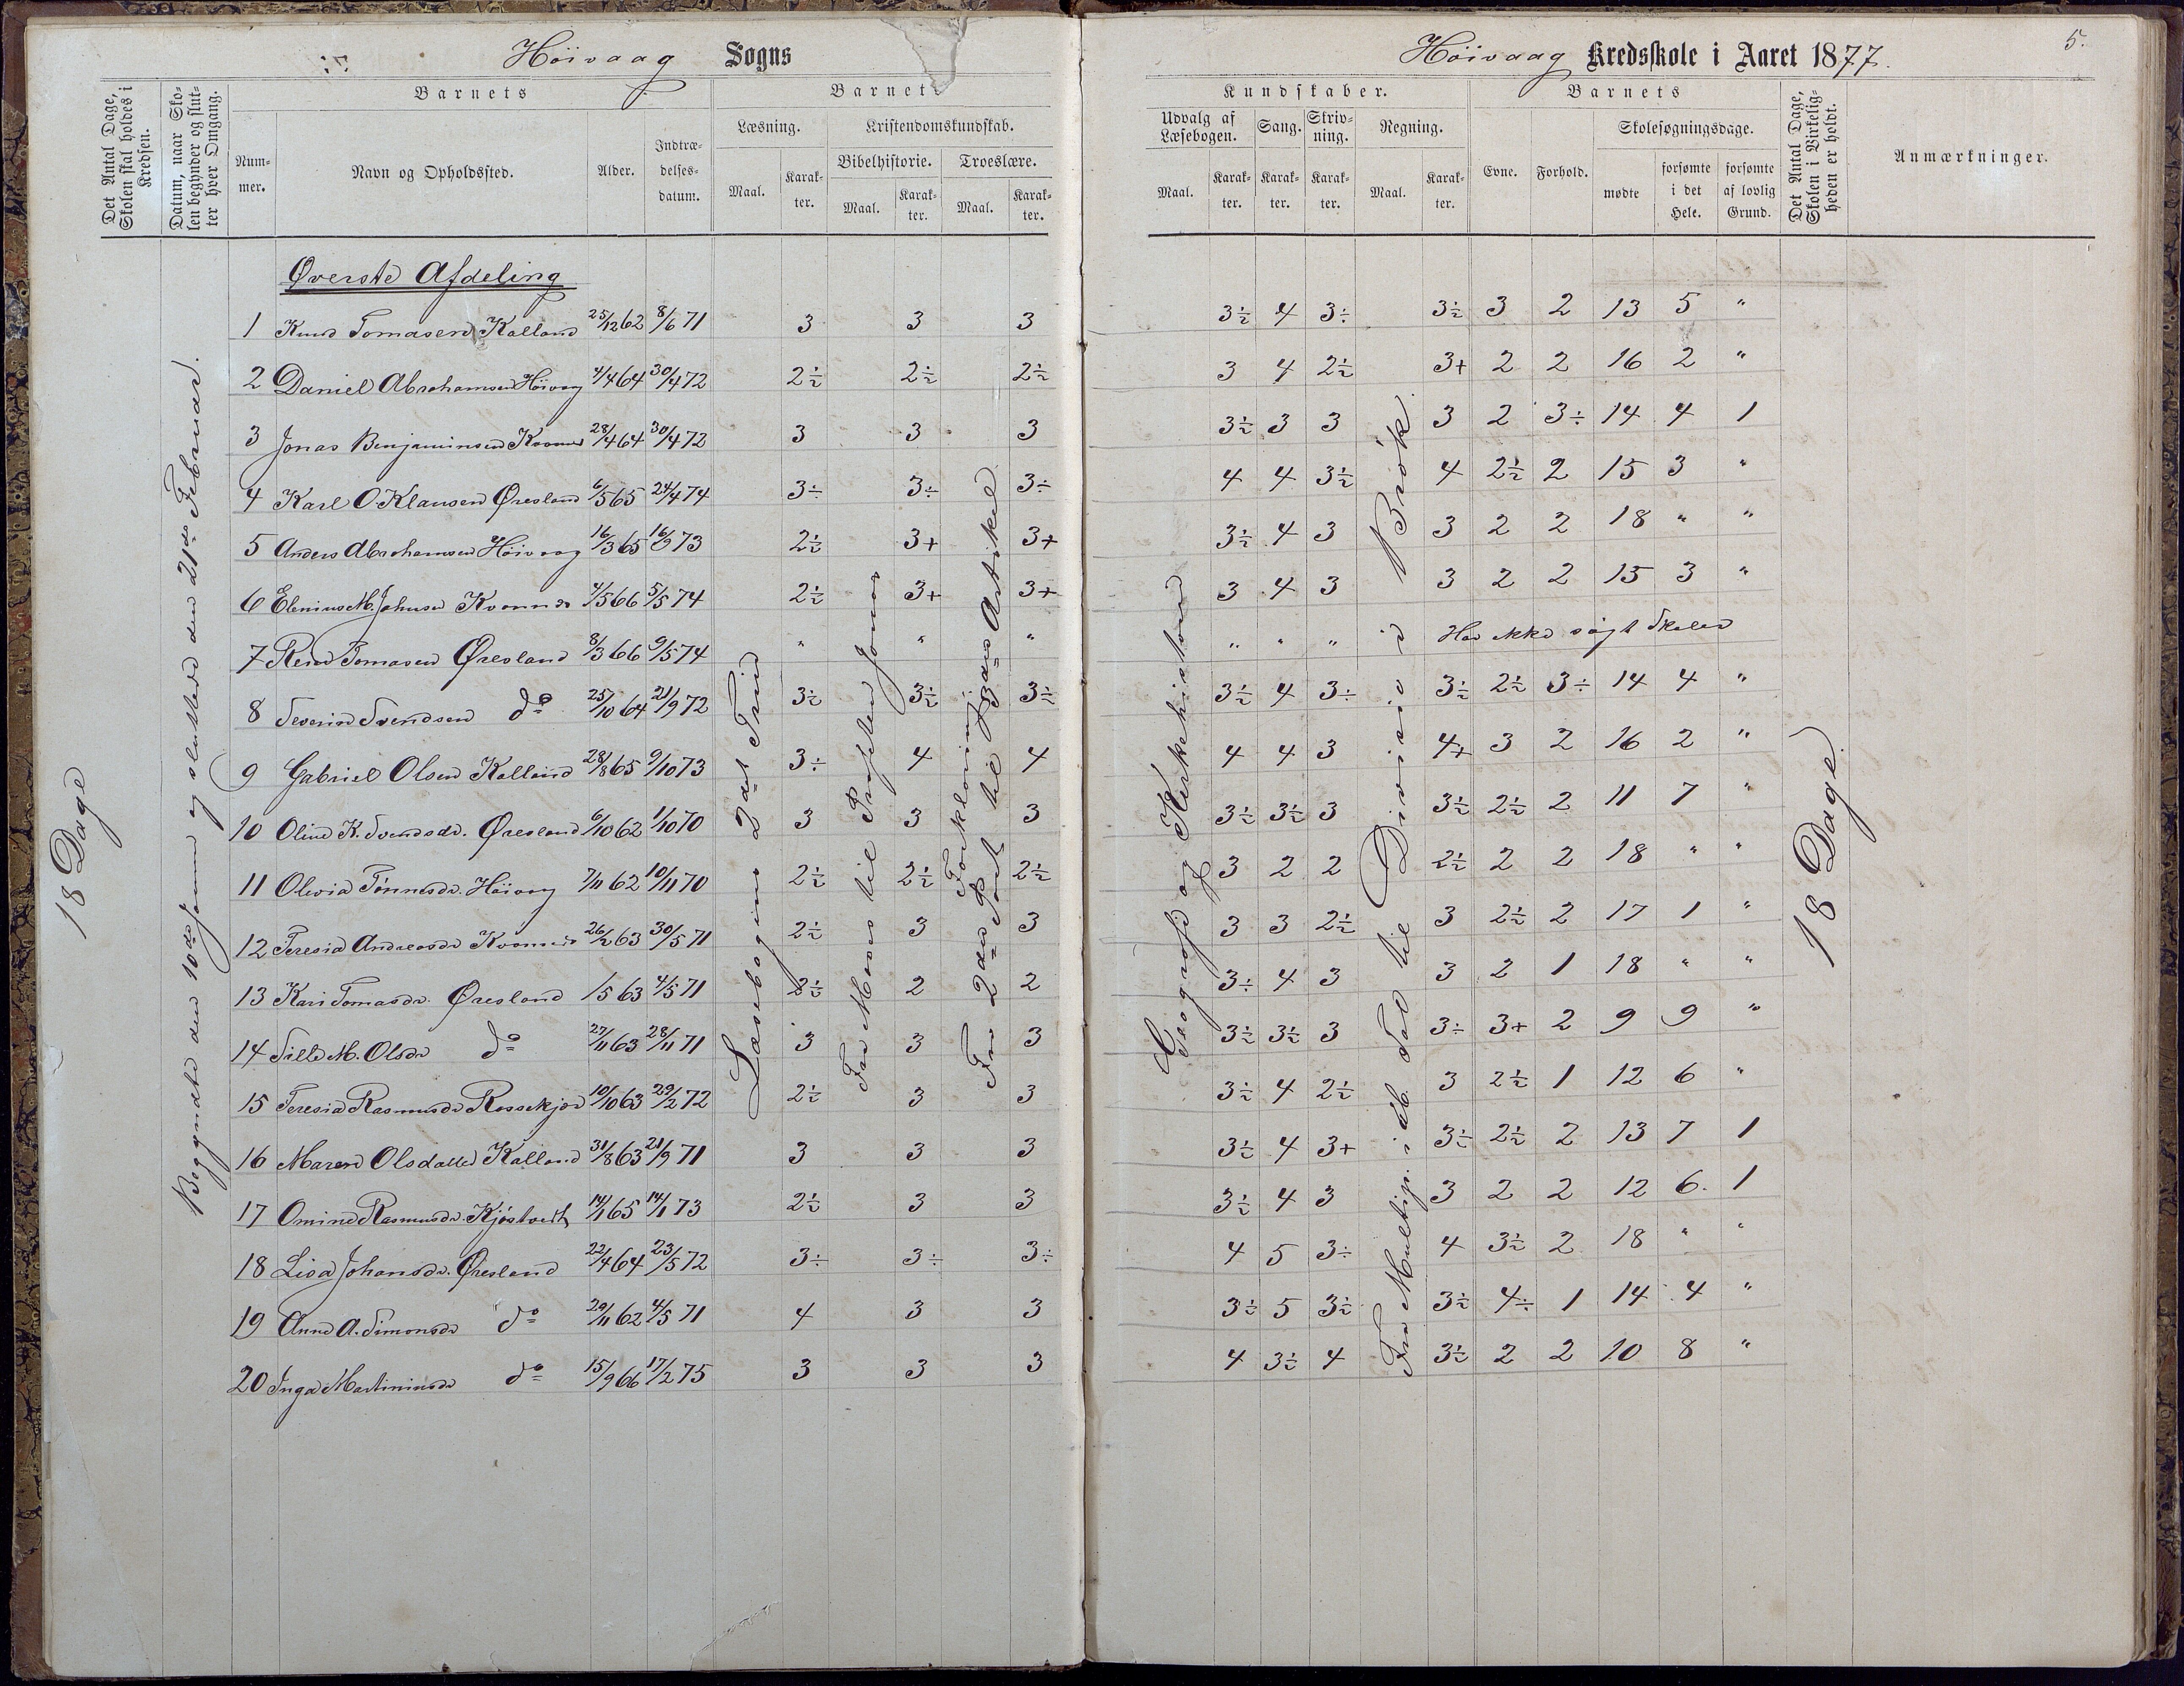 Höivaag Sogns
Höivaag Kredsskole i Aaret 1877.
5.
Det Antal Dage, Skolen skal holdes i Kredsen.
Datum, naar Skolen begynder og slutter hver Omgang.
Barnets
Nummer.
Navn og Opholdssted.
Alder.
Indtrædelsesdatum.
Barnets
Læsning.
Maal.
Karakter.
Kristendomskundskab.
Bibelhistorie.
Maal.
Karakter.
Troeslære.
Maal.
Karakter.
Kundskaber.
Udvalg af Læsebogen.
Maal.
Karakter.
Sang.
Karakter.
Skrivning.
Karakter.
Regning.
Maal.
Karakter.
Barnets
Evne.
Forhold.
Skolesøgningsdage.
mødte
forsømte i det Hele.
forsømte af lovlig Grund.
Det Antal Dage, Skolen i Virkeligheden er holdt.
Anmærkninger.
18 Dage
Begyndte den 10de Januar og sluttede den 21de Februar.
Læsebogens 2det Trin
Fra Moses til Profeten Jonas
Forklaring
Fra 2den Part til 3die Artikel
Geografi og Kirkehistorie
Fra Multip. i db. Tal til Division i Brøk.
18 Dage.
Øverste Afdeling
1 Knud Tomasen Kalland 25/12 62 8/6 71 3 3 3 3½ 4 3÷ 3½ 3 2 13 5 "
2 Daniel Abrahamsen Höivag 4/4 64 30/4 72 2½ 2½ 2½ 3 4 2½ 3+ 2 2 16 2 "
3 Jonas Benjaminsen Kvannes 28/4 64 30/4 72 3 3 3 3½ 3 3 3 2 3÷ 14 4 1
4 Karl O. Klausen Øresland 6/5 65 24/4 74 3÷ 3÷ 3÷ 4 4 3½ 4 2½ 2 15 3 "
5 Anders Abrahamsen Höivaag 16/3 65 16/9 73 2½ 3+ 3+ 3½ 4 3 3 2 2 18 " "
6 Elenius M. Johnsen Kvannes 4/5 66 5/5 74 2½ 3+ 3+ 3 4 3 3 2 2 15 3 "
7 Reier Tomasen Øresland 8/3 66 9/5 74 " " " " " " Har ikke søgt Skolen
8 Severin Svendsen do 25/10 64 21/9 72 3½ 3½ 3½ 3½ 4 3÷ 3½ 2½ 3÷ 14 4 "
9 Gabriel Olsen Kalland 28/8 65 9/10 73 3÷ 4 4 4 4 3 4+ 3 2 16 2 "
10 Oline K. Svendsdr. Øresland 6/10 62 1/10 70 3 3 3 3½ 3½ 3 3½ 2½ 2 11 7 "
11 Olevia Tönnesdr. Höivag 7/11 62 10/11 70 2½ 2½ 2½ 3 2 2 2½ 2 2 18 " "
12 Teresia Andreasdr Kvannes 26/2 63 30/5 71 2½ 3 3 3 3 2½ 3 2½ 2 17 1 "
13 Kari Tomasdr. Øresland 1/5 63 4/5 71 2½ 2 2 3÷ 4 3 3 2 1 18 " "
14 Sille M. Olsdr do 27/11 63 28/11 71 3 3 3 3½ 3½ 3 3÷ 3+ 2 9 9 "
15 Teresia Rasmusdr Rossekjær 10/10 63 29/2 72 2½ 3 3 3½ 4 2½ 3 2½ 1 12 6 "
16 Maren Olsdatter Kalland 31/8 63 21/9 71 3 3 3 3½ 4 3+ 3½ 2½ 2 13 7 1
17 Omine Rasmusdr. Kjöstvedt 14/1 65 14/1 73 2½ 3 3 3½ 4 3 3 2 2 12 6 1
18 Lisa Johansdr. Øresland 22/4 64 23/5 72 3÷ 3÷ 3÷ 4 5 3÷ 4 3½ 2 18 " "
19 Anne A. Simonsdr do 29/11 62 4/5 71 4 3 3 3½ 5 3½ 3½ 4÷ 1 14 4 "
20 Inga Martininsdr do 15/9 66 17/2 75 3 3 3 4 3½ 4 3½ 2 2 10 8 "